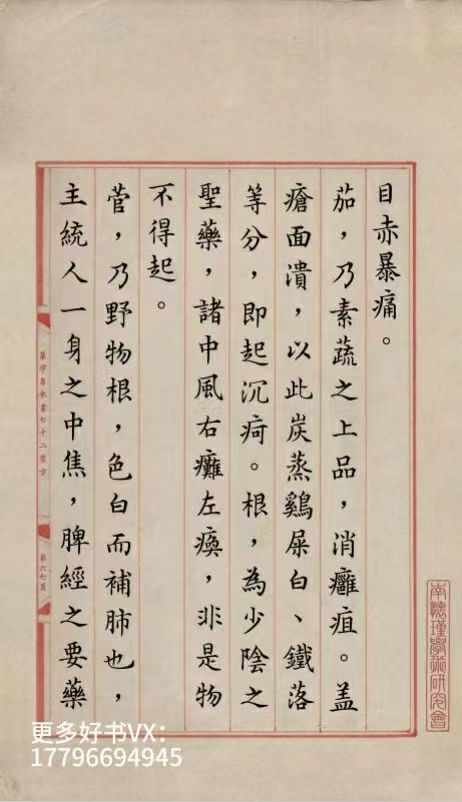 目赤暴痛。
茄，乃素蔬之上品，消癰疽。盖
瘡面潰，以此炭蒸鷄屎白、鐵落
等分，即起沉疴。根，為少陰之
聖藥，諸中風右癱左瘓，非是物
不得起。
菅，乃野物根，色白而補肺也，
主統人一身之中焦，脾經之要藥
第六七頁
南懷瑾學術研究會
更多好书VX：
17796694945